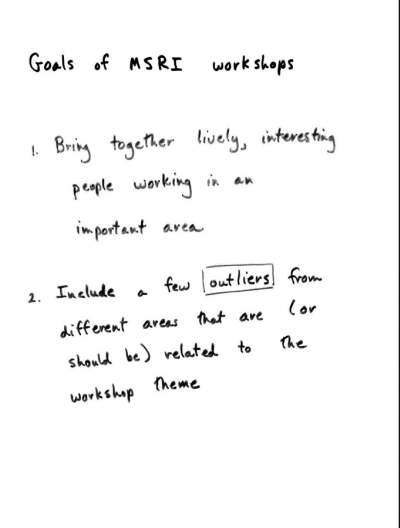 Goals of MSRI workshops
1. Bring together lively, interesting
people working in an
important area
2. Include a few outliers from
different areas that are (or
should be) related to the
workshop theme